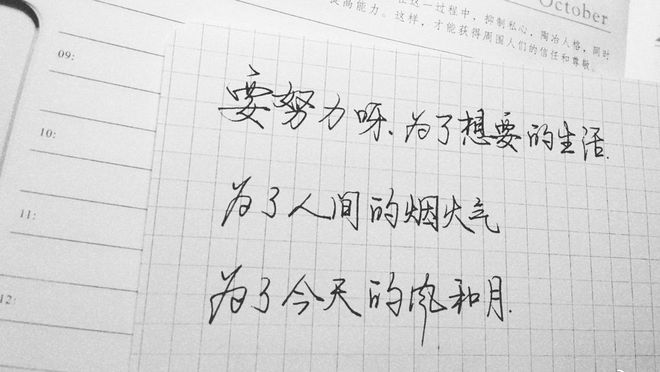 October
在这一过程中，抑制私心，陶冶人格，同时
提高能力。这样，才能获得周围人们的信任和尊敬。
09:
10:
11:
12:
要努力呀、为了想要的生活.
为了人间的烟火气
为了今天的风和月.